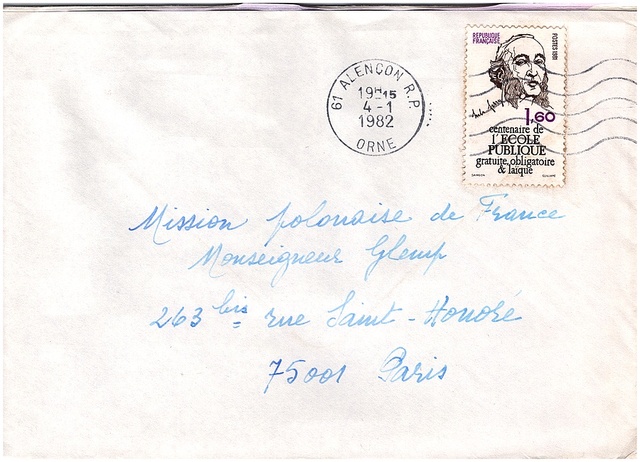 REPUBLIQUE
FRANÇAISE
POSTES 1981
61 ALENCON R.P.
19H15
4-1
1982
ORNE
1,60
centenaire de
l'ECOLE
PUBLIQUE
gratuite, obligatoire
& laïque
Mission polonaise de France
Monseigneur Glemp
263 bis rue Saint-Honoré
75001 Paris